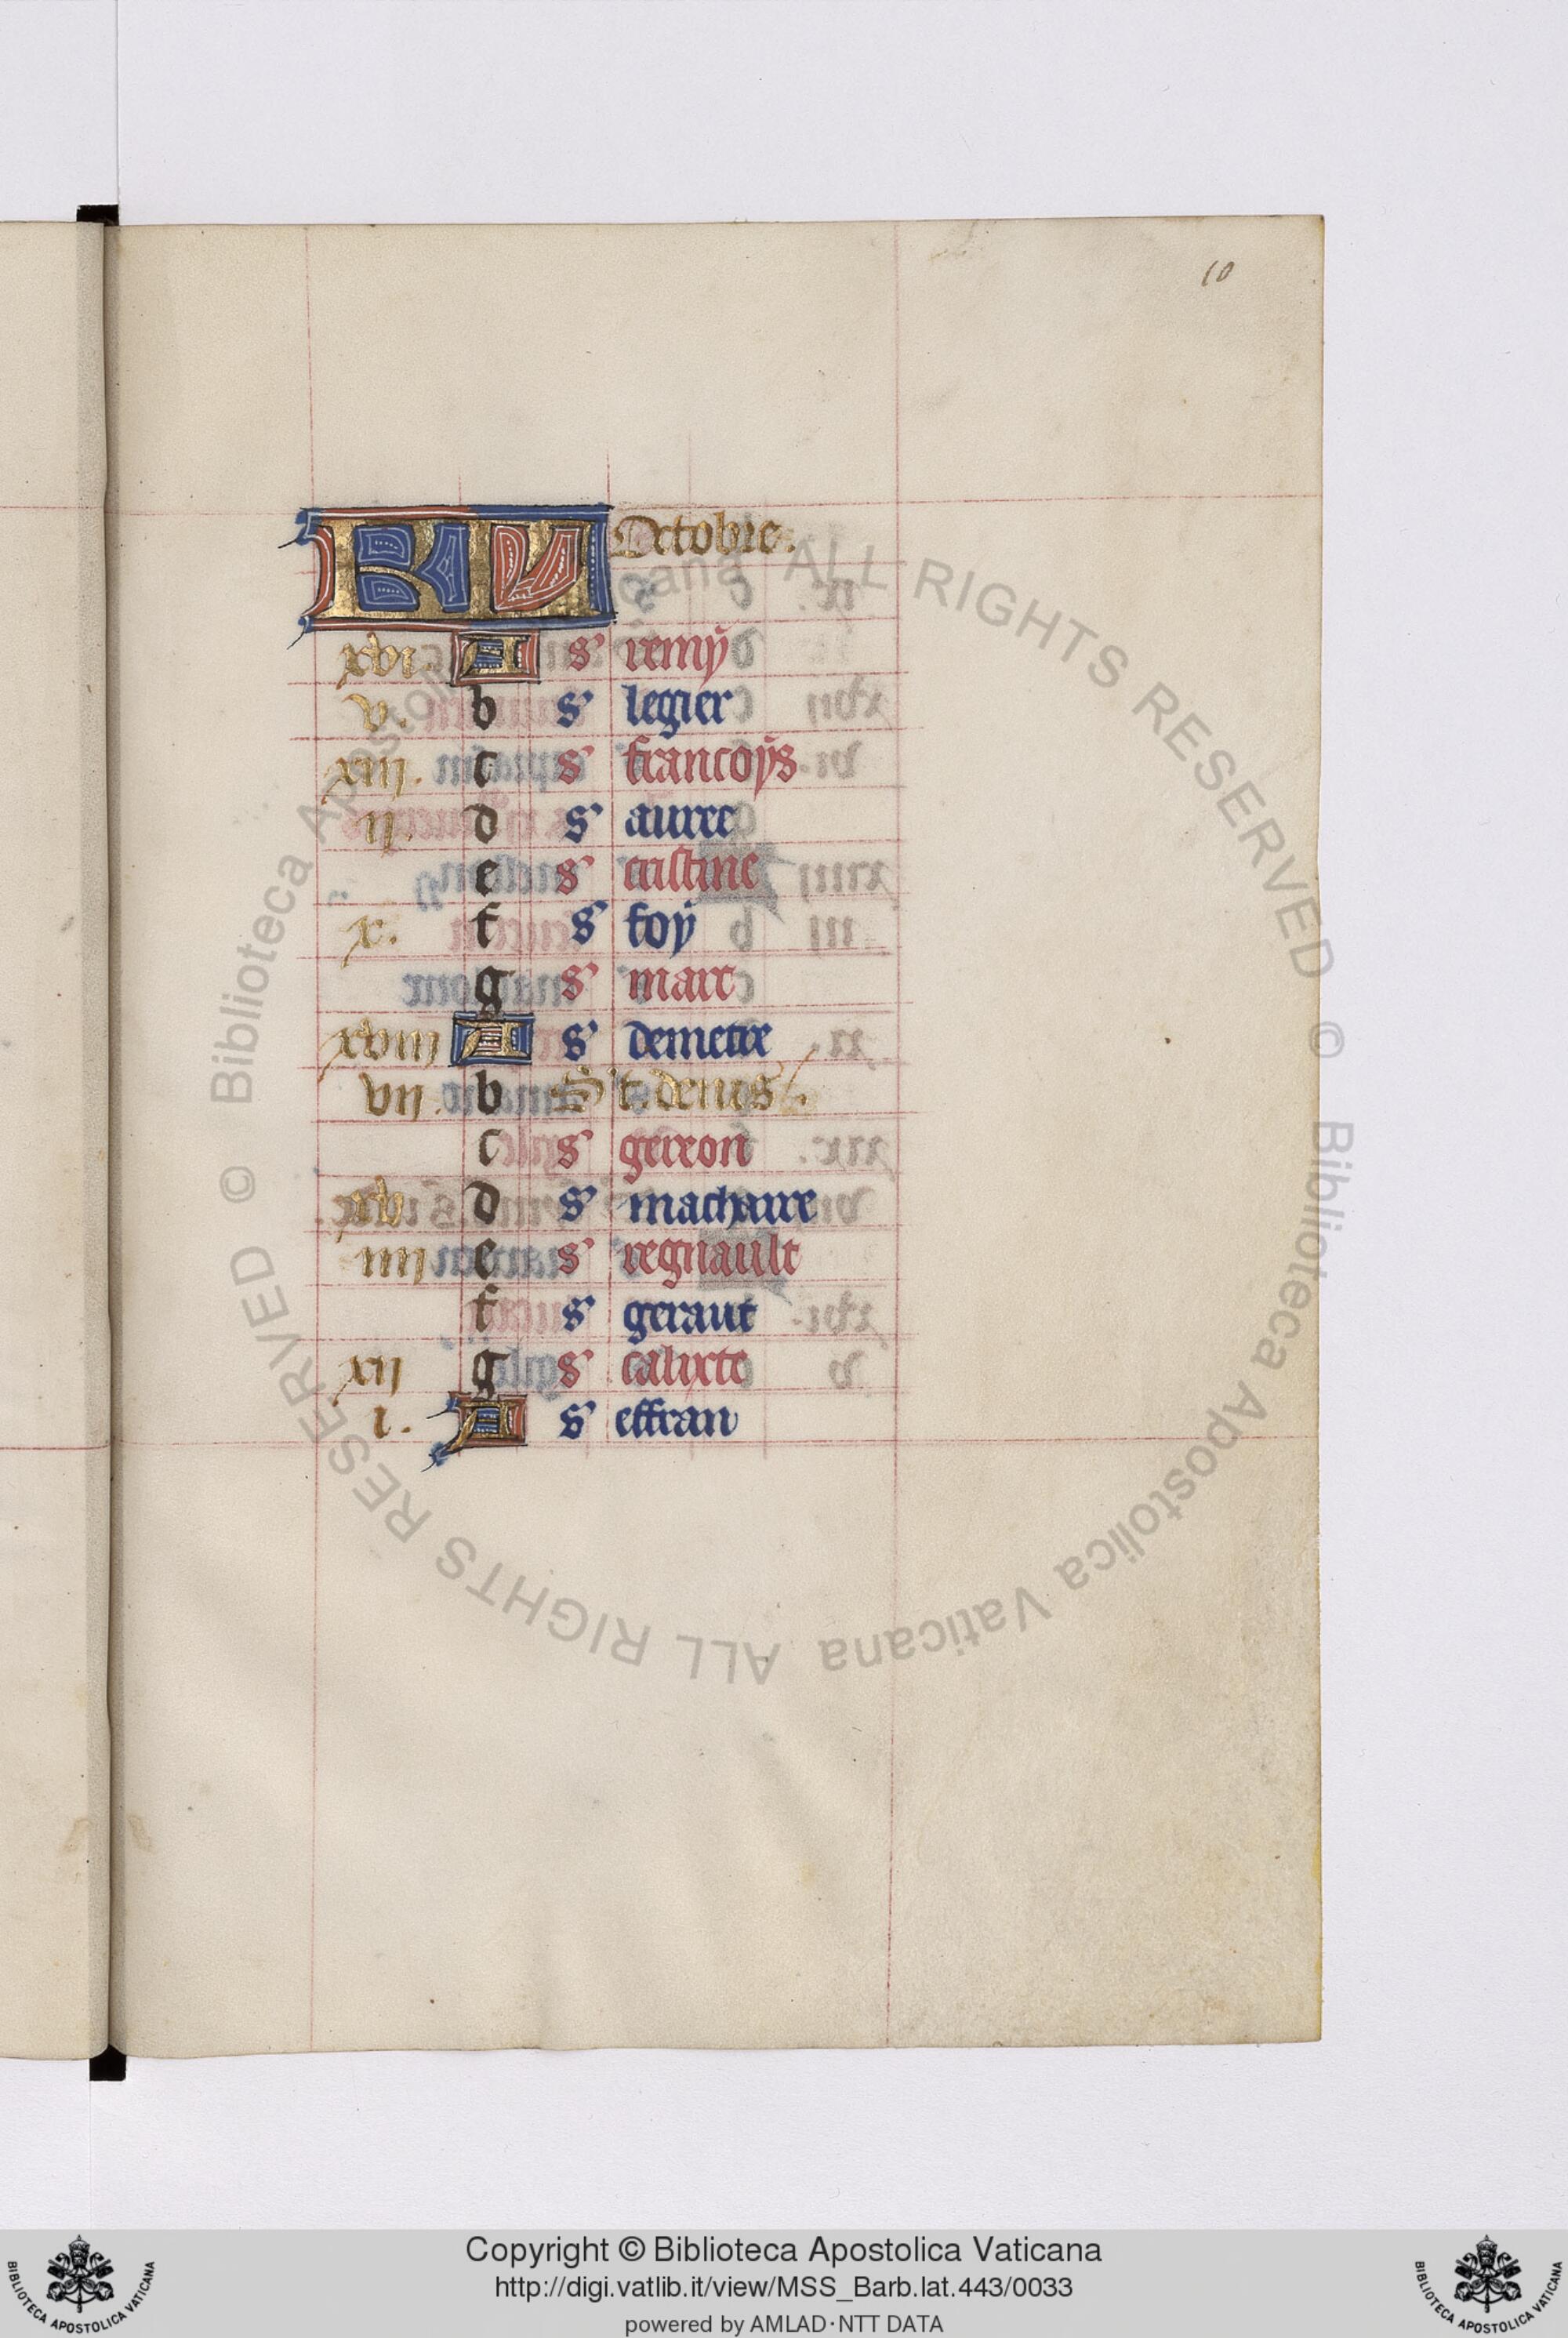 10
KL Octobre.
xvi. A s' remy
v. b s' legier
xiii. c s' francoys
ii. d s' auree
e s' cristine
x. f s' foy
g s' marc
xviii A s' demetre
vii. b S't. denis.
c s' gereon
xv d s' macharre
iiii e s' regnault
f s' geraut
xii g s' calixte
i. A s' effran
© Biblioteca Apostolica Vaticana ALL RIGHTS RESERVED © Biblioteca Apostolica Vaticana ALL RIGHTS RESERVED
Copyright © Biblioteca Apostolica Vaticana
http://digi.vatlib.it/view/MSS_Barb.lat.443/0033
powered by AMLAD·NTT DATA
BIBLIOTECA APOSTOLICA VATICANA
BIBLIOTECA APOSTOLICA VATICANA